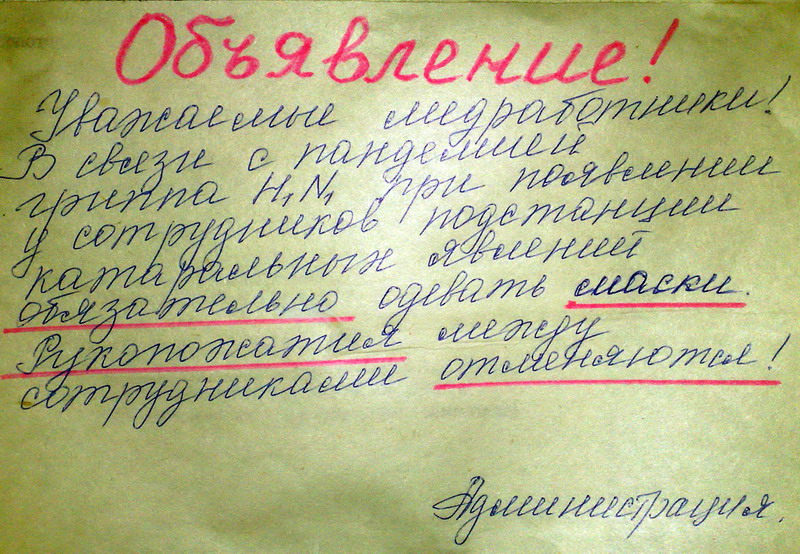 Объявление!
Уважаемые медработники!
В связи с пандемией
гриппа H1N1 при появлении
у сотрудников подстанции
катаральных явлений
обязательно одевать маски.
Рукопожатия между
сотрудниками отменяются!
Администрация.